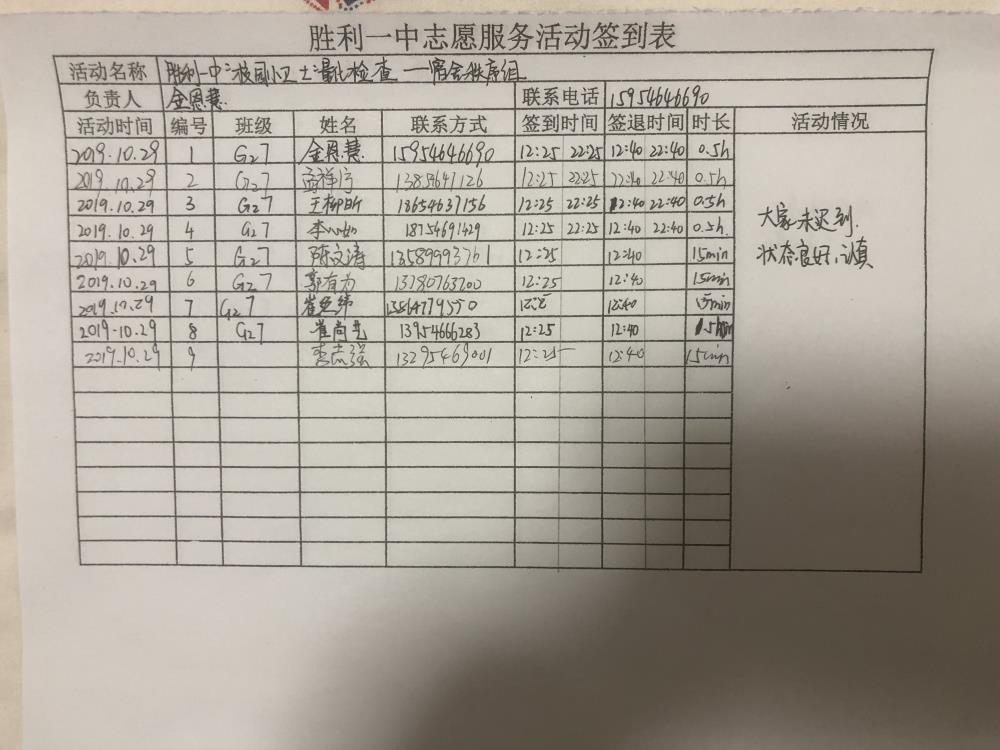 胜利一中志愿服务活动签到表
活动名称 胜利一中校园小卫士量化检查——宿舍秩序组
负责人 金恩慧 联系电话 15954646690
活动时间 编号 班级 姓名 联系方式 签到时间 签退时间 时长 活动情况
2019.10.29 1 G27 金恩慧 15954646690 12:25 22:25 12:40 22:40 0.5h
2019.10.29 2 G27 12:25 22:25 22:40 22:40 0.5h
2019.10.29 3 G27 王柳昕 18654637156 12:25 22:25 12:40 22:40 0.5h
2019.10.29 4 G27 李心如 18754691429 12:25 22:25 12:40 22:40 0.5h
2019.10.29 5 G27 陈文涛 13589993761 12:25 12:40 15min
2019.10.29 6 G27 郭有为 12:25 12:40 15min
2019.10.29 7 G27 12:40 15min
2019.10.29 8 G27 崔尚先 13954666283 12:25 12:40
2019.10.29 9 李志强 13295469001 12:25 12:40 15min
大家未迟到.
状态良好,认真